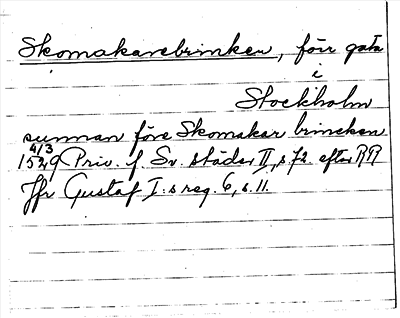 Skomakarebrinken, förr gata
i
Stockholm
sunnan före Skomakar brincken
4/3
1529 Priv. f. Sv. städer II, s 72. efter RR
Jfr Gustaf I:s reg. 6, s. 11.